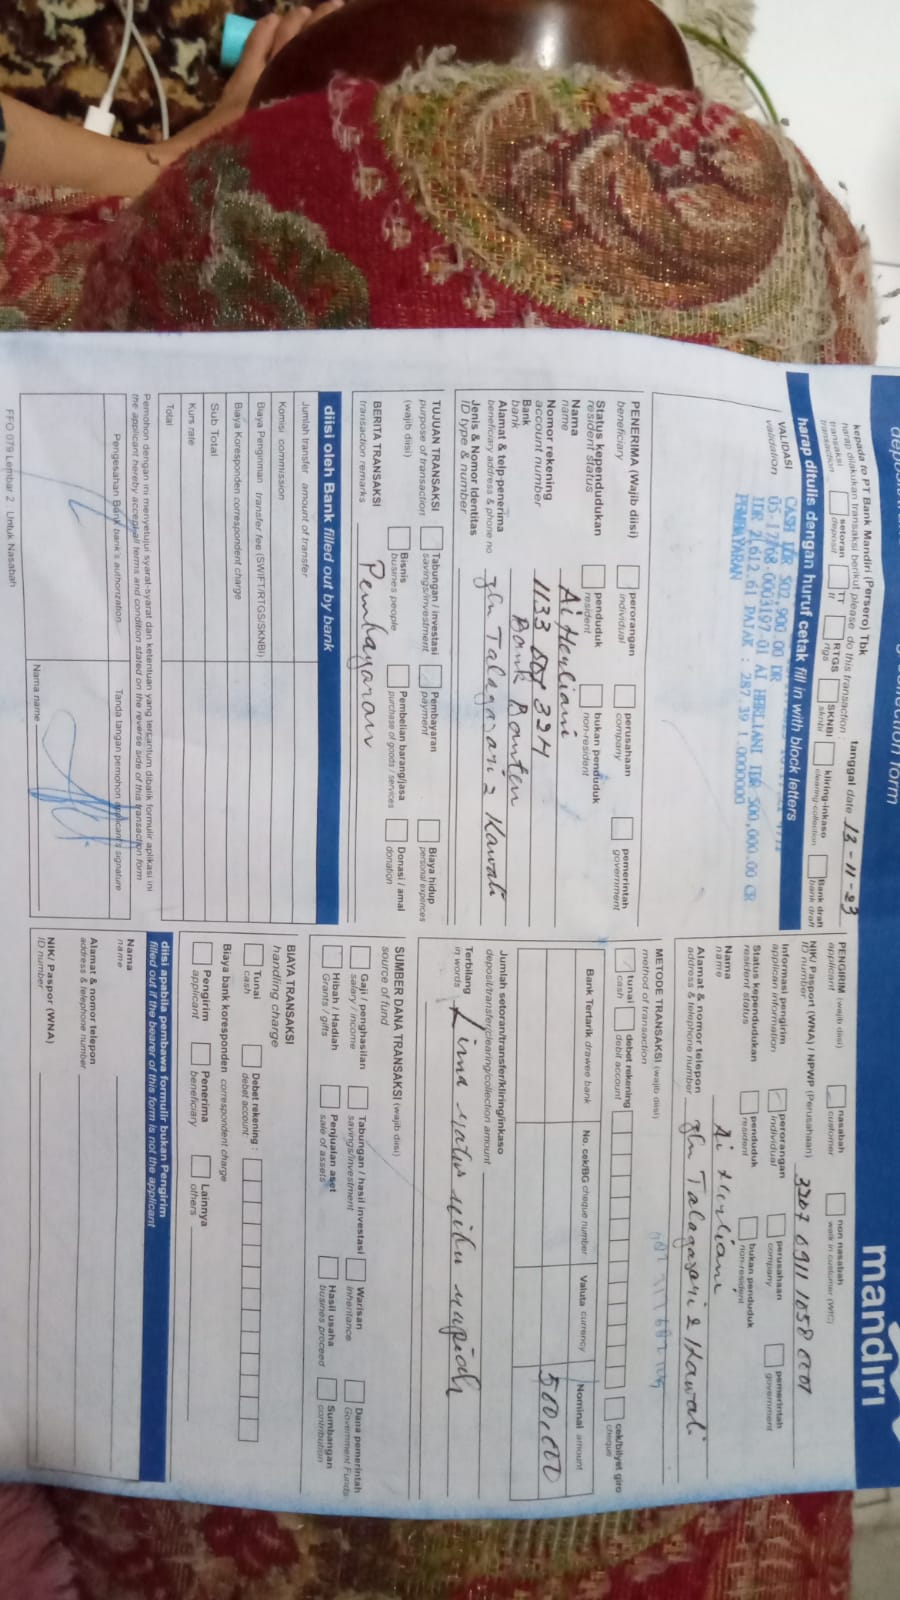 mandırı
kepada to PT Bank Mandiri (Persero) Tbk
tanggal date 13-11-23
harap dilakukan transaksi berikut please do this transaction :
transaksi transaction
setoran deposit
TT tt
RTGS rtgs
SKNBI sknbi
kliring-inkaso clearing-collection
Bank draft bank draft
harap ditulis dengan huruf cetak fill in with block letters
VALIDASI validation
CASH IDR 502,900.00 DR
IDR 500,000.00 CR
PEMBAYARAN
PENERIMA (Wajib diisi)
beneficiary
perorangan individual
perusahaan company
pemerintah government
Status kependudukan
resident status
penduduk resident
bukan penduduk non-resident
Nama
name
Ai Herliani
Nomor rekening
account number
Bank
bank
Bank Banten
Alamat & telp-penerima
beneficiary address & phone no
Jln Talagasari 2 Kawali
Jenis & Nomor Identitas
ID type & number
TUJUAN TRANSAKSI
purpose of transaction
(wajib diisi)
Tabungan / investasi savings/investment
Pembayaran payment
Biaya hidup personal expences
Bisnis busines people
Pembelian barang/jasa purchase of goods / services
Donasi / amal donation
BERITA TRANSAKSI
transaction remarks
Pembayaran
diisi oleh Bank filled out by bank
Jumlah transfer amount of transfer
Komisi commission
Biaya Pengiriman transfer fee (SWIFT/RTGS/SKNBI)
Biaya Koresponden correspondent charge
Sub Total
Kurs rate
Total
Pemohon dengan ini menyetujui syarat-syarat dan ketentuan yang tercantum dibalik formulir aplikasi ini
the applicant hereby accept all terms and condition stated on the reverse side of this transaction form
Pengesahan Bank bank's authorization
Tanda tangan pemohon applicant's signature
Nama name
FFO 079 Lembar 2 Untuk Nasabah
PENGIRIM (wajib diisi)
applicant
nasabah customer
non nasabah walk in customer (WIC)
NIK/ Pasport (WNA) / NPWP (Perusahaan)
ID number
Informasi pengirim
applicant information
perorangan individual
perusahaan company
pemerintah government
Status kependudukan
resident status
penduduk resident
bukan penduduk non-resident
Nama
name
Ai Herliani
Alamat & nomor telepon
address & telephone number
Jln Talagasari 2 Kawali
METODE TRANSAKSI (wajib diisi)
method of transaction
tunai cash
debet rekening debit account
cek/bilyet giro cheque
Bank Tertarik drawee bank
No. cek/BG cheque number
Valuta currency
Nominal amount
500,000
Jumlah setoran/transfer/kliring/inkaso
deposit/transfer/clearing/collection amount
Terbilang
in words
Lima ratus ribu rupiah
SUMBER DANA TRANSAKSI (wajib diisi)
source of fund
Gaji / penghasilan salary / income
Tabungan / hasil investasi savings/investment
Warisan inheritance
Dana pemerintah Government Funds
Hibah / Hadiah Grants / gifts
Penjualan aset sale of assets
Hasil usaha busines proceed
Sumbangan contribution
BIAYA TRANSAKSI
handling charge
Tunai cash
Debet rekening : debet account
Biaya bank koresponden correspondent charge
Pengirim applicant
Penerima beneficiary
Lainnya others
diisi apabila pembawa formulir bukan Pengirim
filled out if the bearer of this form is not the applicant
Nama
name
Alamat & nomor telepon
address & telephone number
NIK/ Paspor (WNA)
ID number